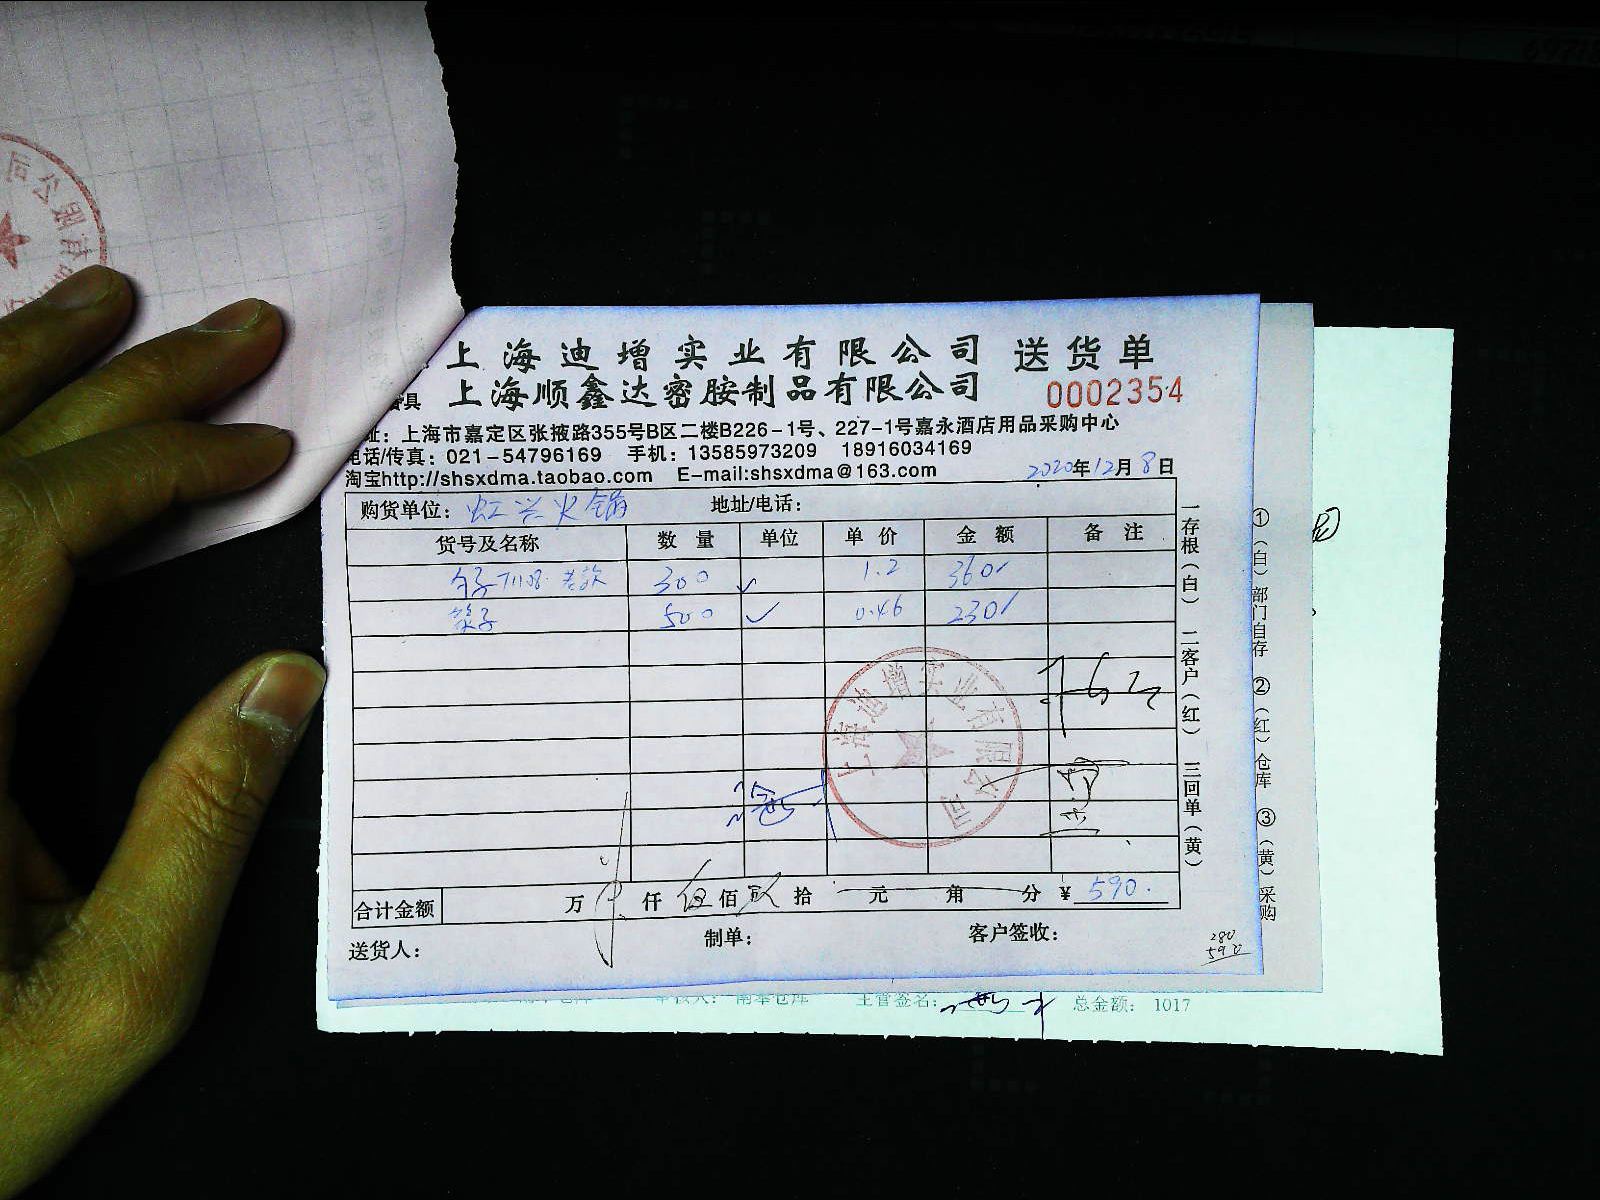 上海迪增实业有限公司 送货单
上海顺鑫达密胺制品有限公司 0002354
址：上海市嘉定区张掖路355号B区二楼B226-1号、227-1号嘉永酒店用品采购中心
电话/传真：021-54796169 手机：13585973209 18916034169
淘宝http://shsxdma.taobao.com E-mail:shsxdma@163.com 2020年12月8日
购货单位：虹兴火锅 地址/电话：
货号及名称 数量 单位 单价 金额 备注
勺子7108 老款 300 1.2 360
筷子 500 0.46 230
上海迪增实业有限公司
合计金额 万 仟 伍佰 玖拾 元 角 分 ¥ 590.
送货人： 制单： 客户签收：
280
590
一存根（白） 二客户（红） 三回单（黄）
①（白）部门自存 ②（红）仓库 ③（黄）采购
主管签名： 总金额： 1017